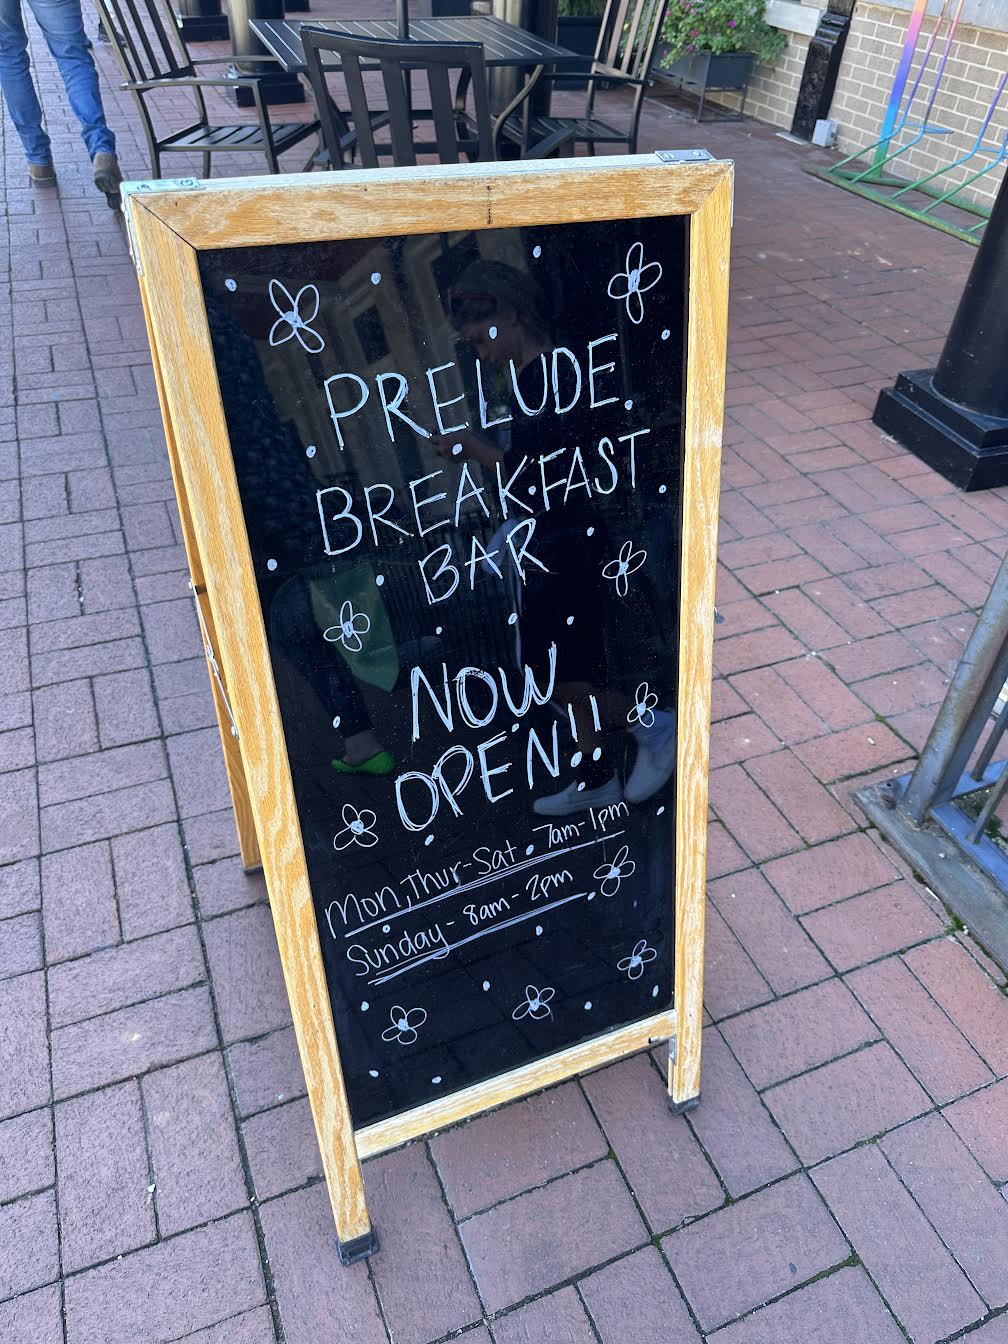 PRELUDE
BREAKFAST
BAR
NOW
OPEN!!
Mon, Thur-Sat. 7am-1pm
Sunday - 8am-2pm